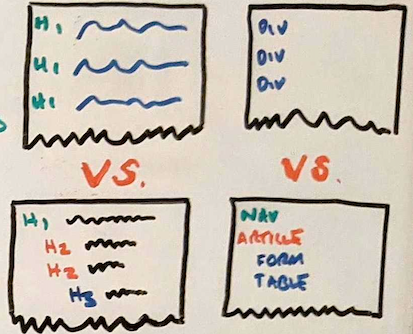 H1
H1
H1
DIV
DIV
DIV
VS.
VS.
H1
H2
H2
H3
NAV
ARTICLE
FORM
TABLE